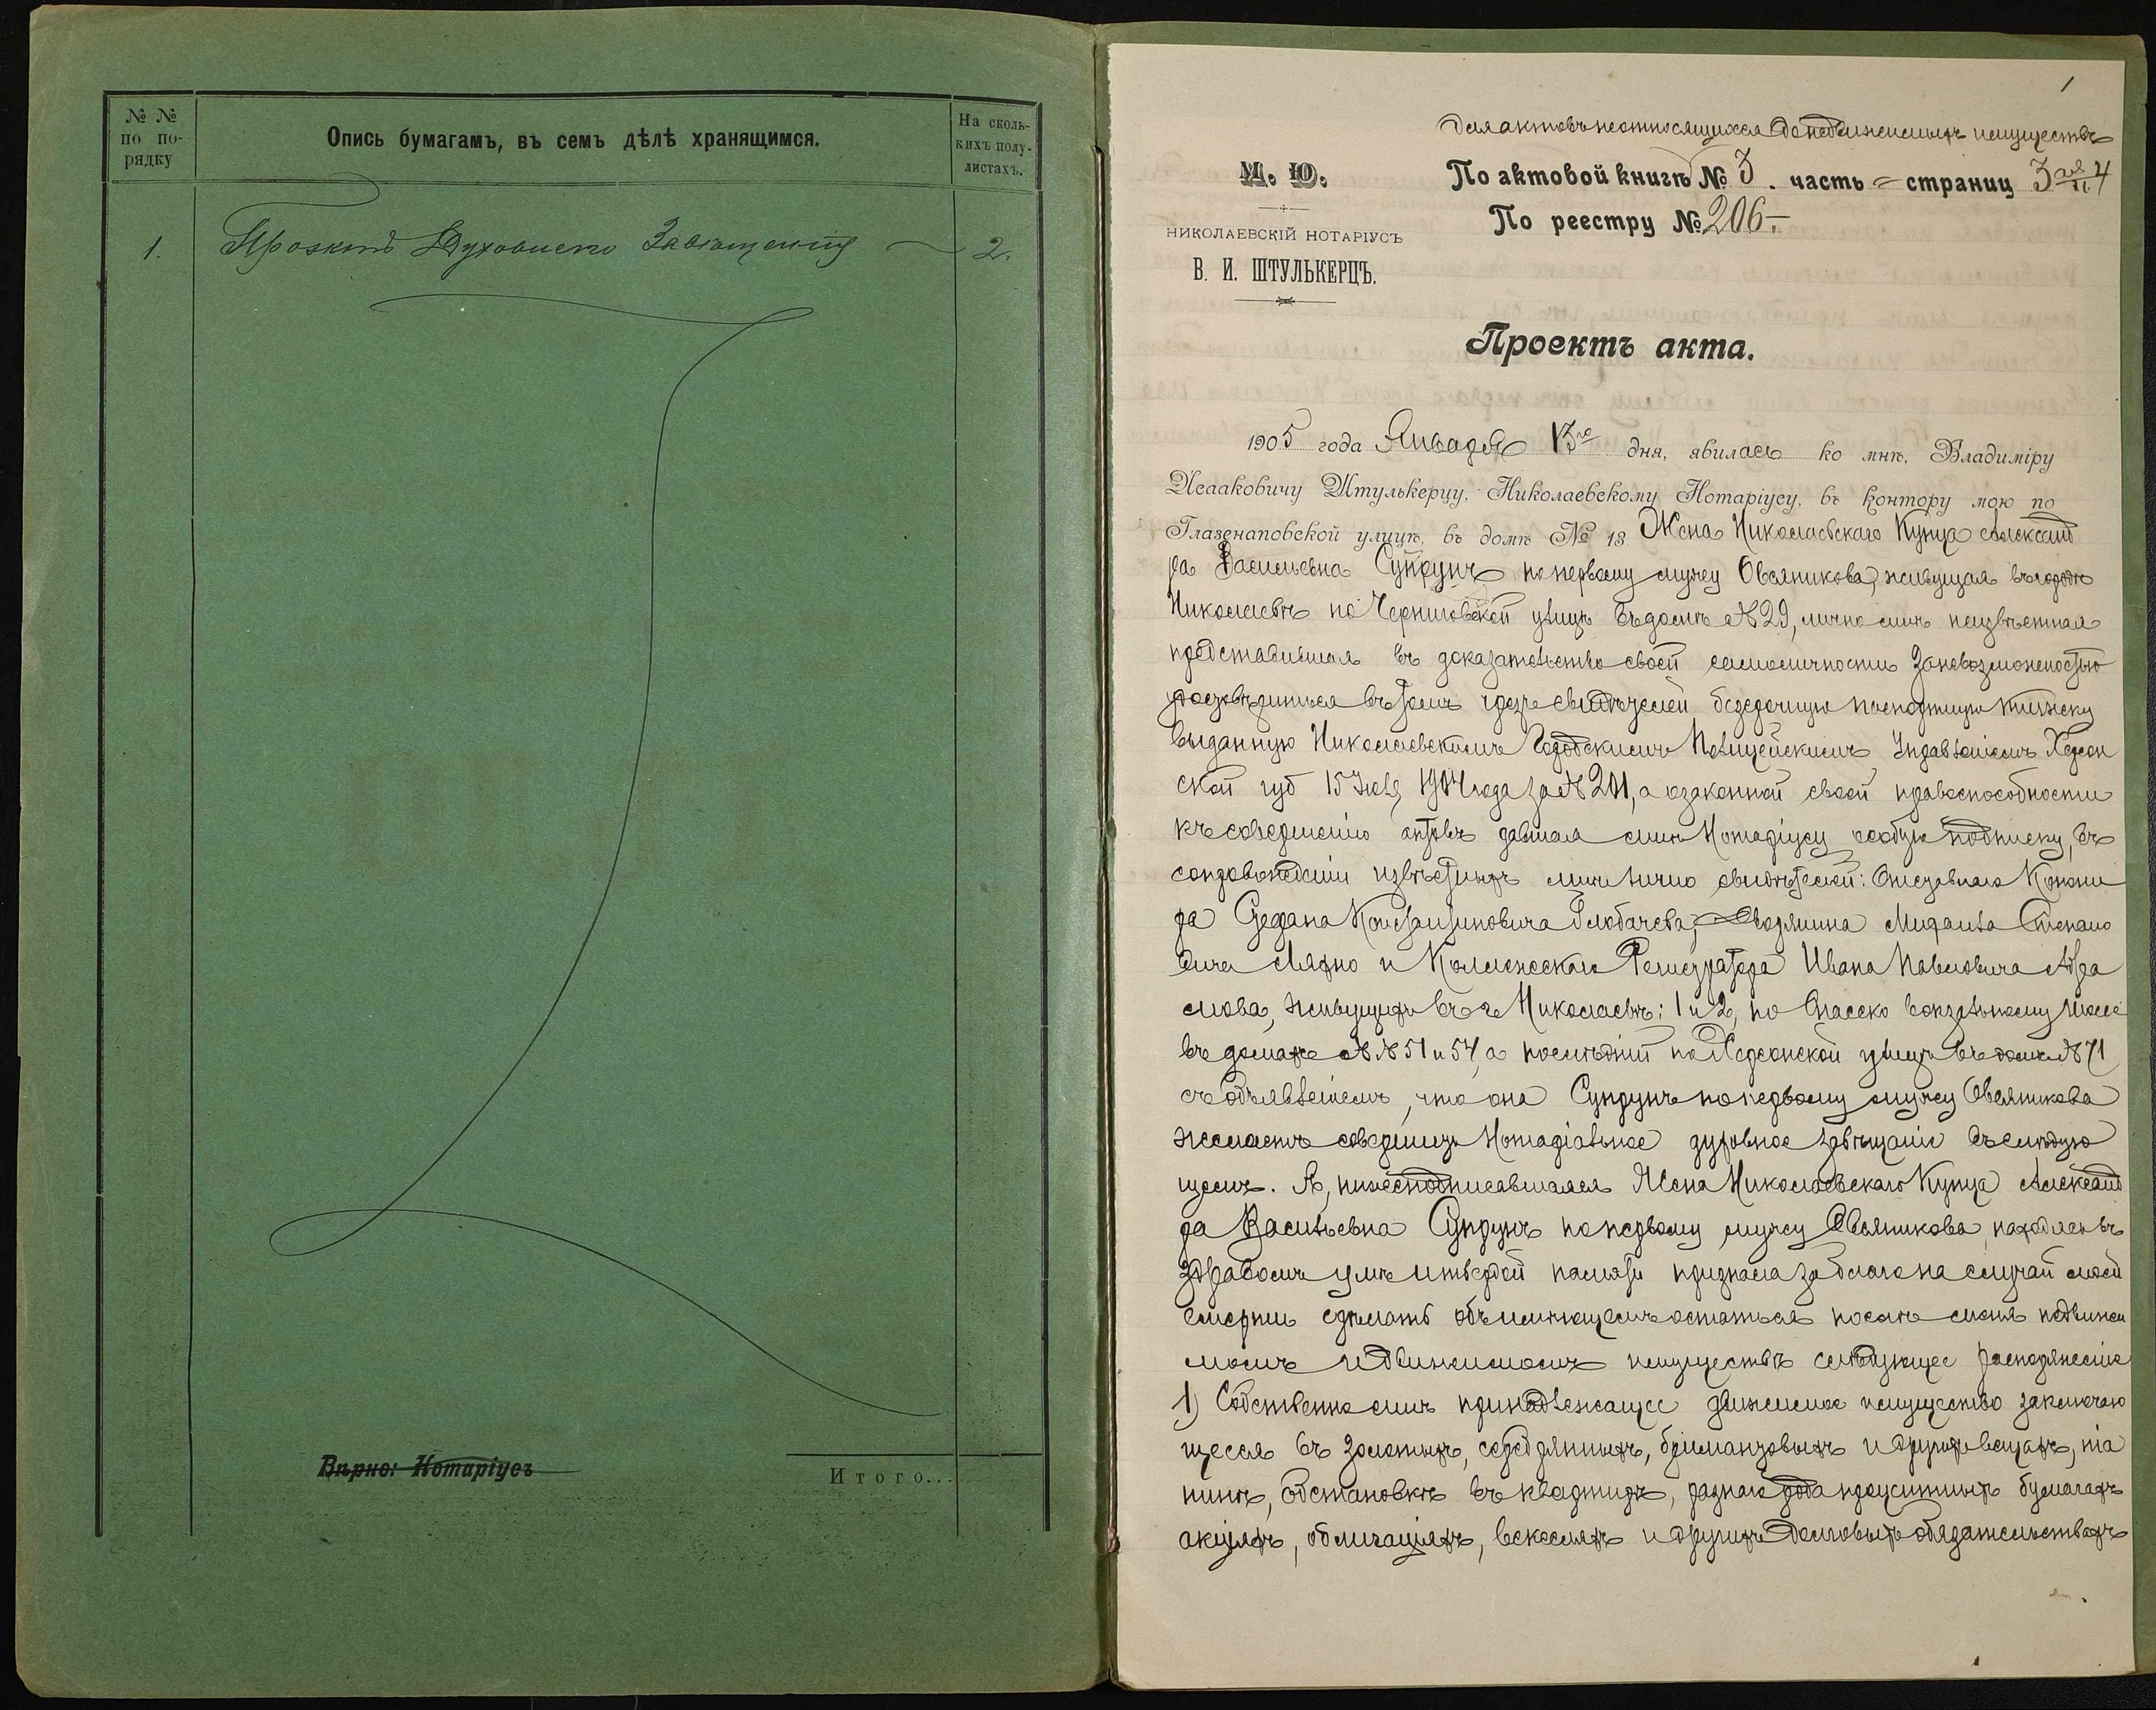 № №
по по-
рядку
Опись бумагамъ, въ семъ дѣлѣ хранящимся.
На сколь-
кихъ полу-
листахъ.
1. Проектъ Духовнаго Завѣщанія 2.
Вѣрно: Нотаріусъ
Итого...
1
Для актовъ неотносящихся до недвижимыхъ имуществъ
М. Ю.
По актовой книгѣ № 3. часть = страниц 3 4
По реестру № 206.-
НИКОЛАЕВСКІЙ НОТАРІУСЪ
В. И. ШТУЛЬКЕРЦЪ.
Проектъ акта.
1905 года Января 13го дня, явилась ко мнѣ, Владиміру
Исааковичу Штулькерцу, Николаевскому Нотаріусу, въ контору мою по
Глазенаповской улицѣ, въ домѣ № 13 Жена Николаевскаго Купца Александ
ра Васильевна Супрунъ по первому мужу Овсяникова, живущая въ городѣ
Николаевѣ по Черниговской улицѣ въ домѣ №29, лично мнѣ неизвѣстная
представившая въ доказательство своей самоличности за невозможностью
удостовѣриться въ томъ чрезъ свидѣтелей безсрочную паспортную книжку
выданную Николаевскимъ Городскимъ Полицейскимъ Управленіемъ Херсон
ской губ 15 1904 года за №201, а о законной своей правоспособности
къ совершенію актовъ давшая мнѣ Нотаріусу особую подписку, въ
сопровожденіи извѣстныхъ мнѣ лично свидѣтелей: Отставного
ра Стефана Константиновича Дворянина Михаила Степано
вича и Коллежскаго Регистратора Ивана Павловича Абра
мова, живущихъ въ г Николаевѣ: 1 и 2, по Спасско вокзальному шоссе
въ домахъ №№51 и 54, а послѣдній по Херсонской улицѣ въ домѣ №71
съ объявленіемъ, что она Супрунъ по первому мужу Овсяникова
желаетъ совершить Нотаріальное духовное завѣщаніе въ слѣдую
щемъ. Я, нижеподписавшаяся Жена Николаевскаго Купца Александ
ра Васильевна Супрунъ по первому мужу Овсяникова, находясь въ
здравомъ умѣ и твердой памяти признала за благо на случай моей
смерти сдѣлать объ имѣющемъ остаться послѣ меня недвижи
момъ и движимомъ имуществѣ слѣдующее распоряженіе
1) Собственно мнѣ принадлежащее движимое имущество заключаю
щееся въ золотыхъ, серебрянныхъ, брилліантовыхъ и другихъ вещахъ, піа
нинѣ, обстановкѣ въ квартирѣ, разнаго рода процентныхъ бумагахъ
акціяхъ, облигаціяхъ, векселяхъ и другихъ долговыхъ обязательствахъ